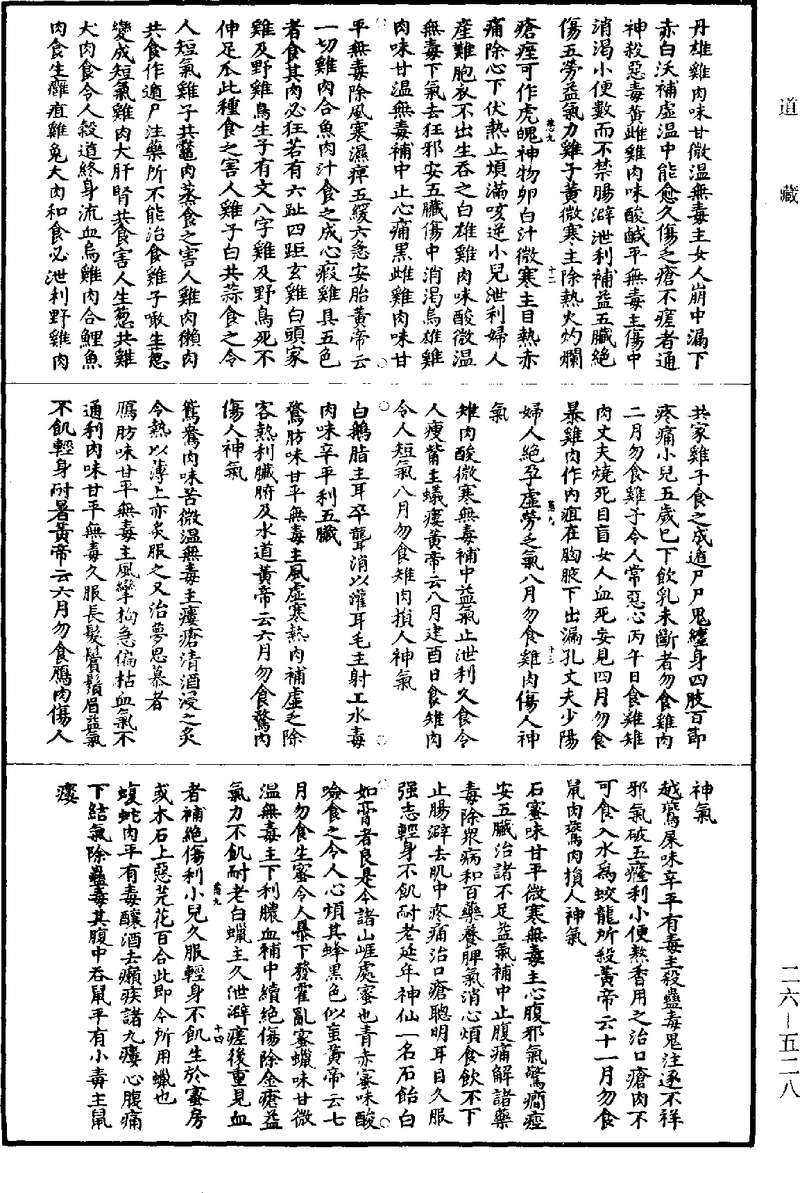 道藏
丹雄雞肉味甘微溫無毒主女人崩中漏下
赤白沃補虛溫中能愈久傷之瘡不瘥者通
神殺惡毒黃雌雞肉味酸鹹平無毒主傷中
消渴小便數而不禁腸澼泄利補益五臟絕
傷五勞益氣力雞子黃微寒主除熱火灼爛
瘡痓可作虎魄神物卵白汁微寒主目熱赤
痛除心下伏熱止煩滿欬逆小兒泄利婦人
產難胞衣不出生吞之白雄雞肉味酸微溫
無毒下氣去狂邪安五臟傷中消渴烏雄雞
肉味甘溫無毒補中止心痛黑雌雞肉味甘
平無毒除風寒濕痺五緩六急安胎黃帝云
一切雞肉合魚肉汁食之成心瘕雞具五色
者食其肉必狂若有六趾四距玄雞白頭家
雞及野雞鳥生子有文八字雞及野鳥死不
伸足爪此種食之害人雞子白共蒜食之令
人短氣雞子共鱉肉蒸食之害人雞肉獺肉
共食作遁尸注藥所不能治食雞子啖生葱
變成短氣雞肉犬肝腎共食害人生葱共雞
犬肉食令人穀道終身流血烏雞肉合鯉魚
肉食生癰疽雞兔犬肉和食必泄利野雞肉
共家雞子食之成遁尸尸鬼纏身四肢百節
疼痛小兒五歲已下飲乳未斷者勿食雞肉
二月勿食雞子令人常惡心丙午日食雞雉
肉丈夫燒死目盲女人血死妄見四月勿食
暴雞肉作內疽在胸腋下出漏孔丈夫少陽
婦人絕孕虛勞乏氣八月勿食雞肉傷人神
氣
雉肉酸微寒無毒補中益氣止泄利久食令
人瘦觜主蟻瘻黃帝云八月建酉日食雉肉
令人短氣八月勿食雉肉損人神氣
白鵝脂主耳卒聾消以灌耳毛主射工水毒
肉味辛平利五臟
鶩肪味甘平無毒主風虛寒熱肉補虛乏除
客熱利臟腑及水道黃帝云六月勿食鶩肉
傷人神氣
鴛鴦肉味苦微溫無毒主瘻瘡清酒浸之炙
令熱以薄之亦炙服之又治夢思慕者
鴈肪味甘平無毒主風攣拘急偏枯血氣不
通利肉味甘平無毒久服長髮鬢鬚眉益氣
不飢輕身耐暑黃帝云六月勿食鴈肉傷人
神氣
越鷰屎味辛平有毒主殺蠱毒鬼注逐不祥
邪氣破五癃利小便熬香用之治口瘡肉不
可食入水為蛟龍所殺黃帝云十一月勿食
鼠肉鷰肉損人神氣
石蜜味甘平微寒無毒主心腹邪氣驚癇痙
安五臟治諸不足益氣補中止腹痛解諸藥
毒除眾病和百藥養脾氣消心煩食飲不下
止腸澼去肌中疼痛治口瘡聰明耳目久服
强志輕身不飢耐老延年神仙一名石飴白
如膏者良是今諸山崖處蜜也青赤蜜味酸
噞食之令人心煩其蜂黑色似䖟黃帝云七
月勿食生蜜令人暴下發霍亂蜜蠟味甘微
溫無毒主下利膿血補中續絕傷除金瘡益
氣力不飢耐老白蠟主久泄澼瘥後重見血
者補絕傷利小兒久服輕身不飢生於蜜房
或木石上惡芫花百合此即今所用蠟也
蝮蛇肉平有毒釀酒去癩疾諸九瘻心腹痛
下結氣除蠱毒其腹中吞鼠平有小毒主鼠
瘻
二六—五二八